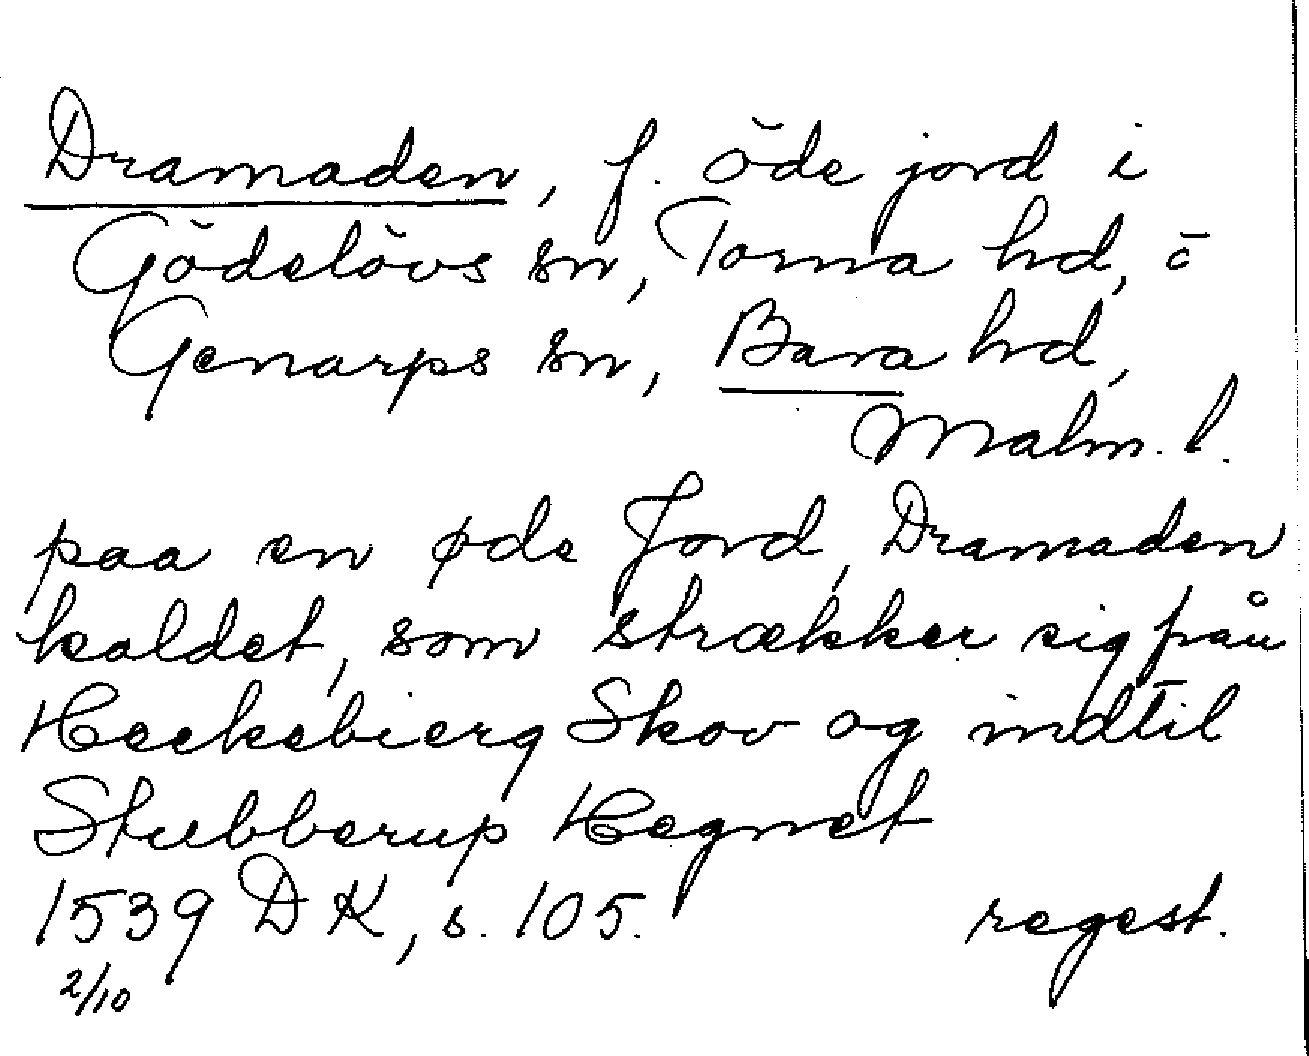 Dramaden, f. öde jord i
Gödelövs sn, Torna hd, o
Genarps sn, Bara hd,
Malm. l.
paa en øde Jord, Dramaden
kaldet, som strækker sig från
Heckebierg Skov og indtil
Stubberup Hegnet
1539 DK, s. 105. regest.
2/10